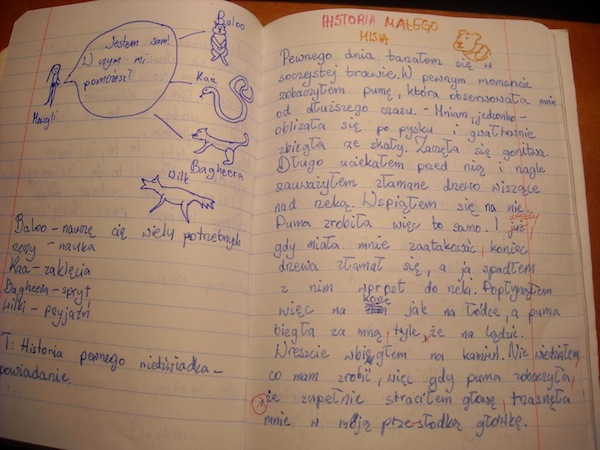 Jestem sam!
W czym mi
pomożesz?
Mowgli
Baloo
Kaa
Bagheera
Wilk
Baloo – nauczę cię wielu potrzebnych
rzeczy – nauka
Kaa – zaklęcia
Bagheera – spryt
Wilki – przyjaźń
T: Historia pewnego niedźwiadka –
opowiadanie.
HISTORIA MAŁEGO
MISIA
Pewnego dnia tarzałem się w
soczystej trawie. W pewnym momencie
zobaczyłem pumę, która obserwowała mnie
od dłuższego czasu. – Mniam, jedzonko –
oblizała się po pysku i gwałtownie
zbiegła ze skały. Zaczęła się gonitwa.
Długo uciekałem przed nią i nagle
zauważyłem złamane drzewo wiszące
nad rzeką. Wspiąłem się na nie.
Puma zrobiła więc to samo. I już
gdy miała mnie zaatakować, koniec
drzewa złamał się, a ja spadłem
z nim wprost do rzeki. Popłynąłem
więc na korze jak na łódce, a puma
biegła za mną, tyle, że na lądzie.
Wreszcie wbiegłem na kamień. Nie wiedziałem,
co mam zrobić, więc gdy puma zobaczyła,
że zupełnie straciłem głowę, trzasnęła
mnie w moją prze-słodką główkę.